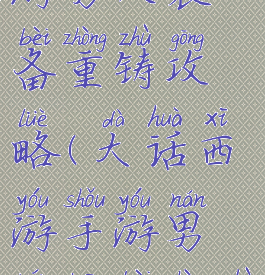 bèi zhòng zhù gōng
备重铸攻
lüè dà huà xī
略(大话西
yóu shǒu yóu nán
游手游男